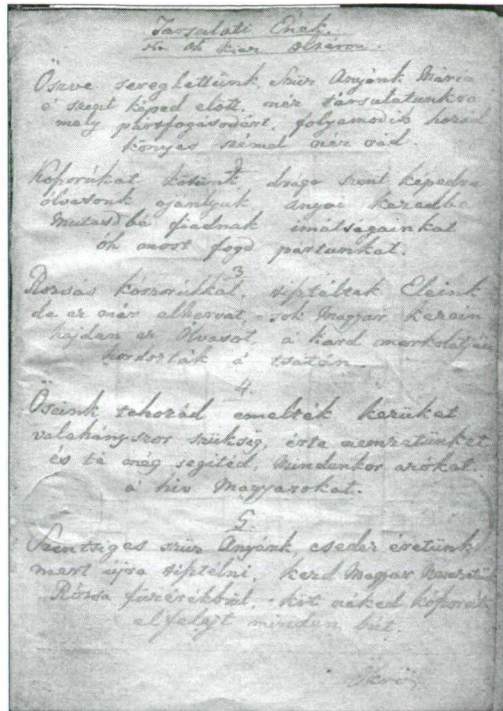 Társulati Ének.
Öszve sereglettünk, Szűz Anyánk Mária
e szegit képed előtt, néz társulatunkra
mely pártfogásodért, folyamodik hozád
könyas szémel néz rád.
Koporúkat kötünk drága szent képedre
olvasonk ajanljuk anyai kezedbe
Mutasd bé fiadnak imátságainkat
óh most fogd partunkat.
3
Rózsás koszorúkkal, Eleink
de ez már elhervat, sok Magyar kezein
hajdan az Olvasót, a kard
hordozták a tsatán
4.
Őseink tehozád emelték kezüket
valahányszor szükség, érte nemzetünket
és te még segitéd, mindenkor azókat
a hiv Magyarokat.
5.
Szentséges szűz Anyánk, esedez éretünk
mert újra kezd Magyar
Rózsa füzérekbűl, kit náked
elfelejt minden bút.